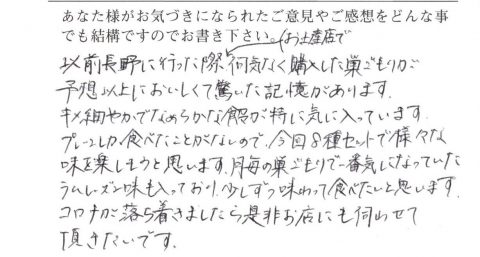 あなた様がお気づきになられたご意見やご感想をどんな事
でも結構ですのでお書き下さい。
お土産店で
以前長野に行った際何気なく購入した巣ごもりが
予想以上においしくて驚いた記憶があります。
キメ細やかでなめらかな餡が特に気に入っています。
プレーンしか食べたことがないので、今回8種セットで様々な
味を楽しもうと思います。月毎の巣ごもりで一番気になっていた
ラムレーズン味も入っており、少しずつ味わって食べたいと思います。
コロナが落ち着きましたら是非お店にも伺わせて
頂きたいです。